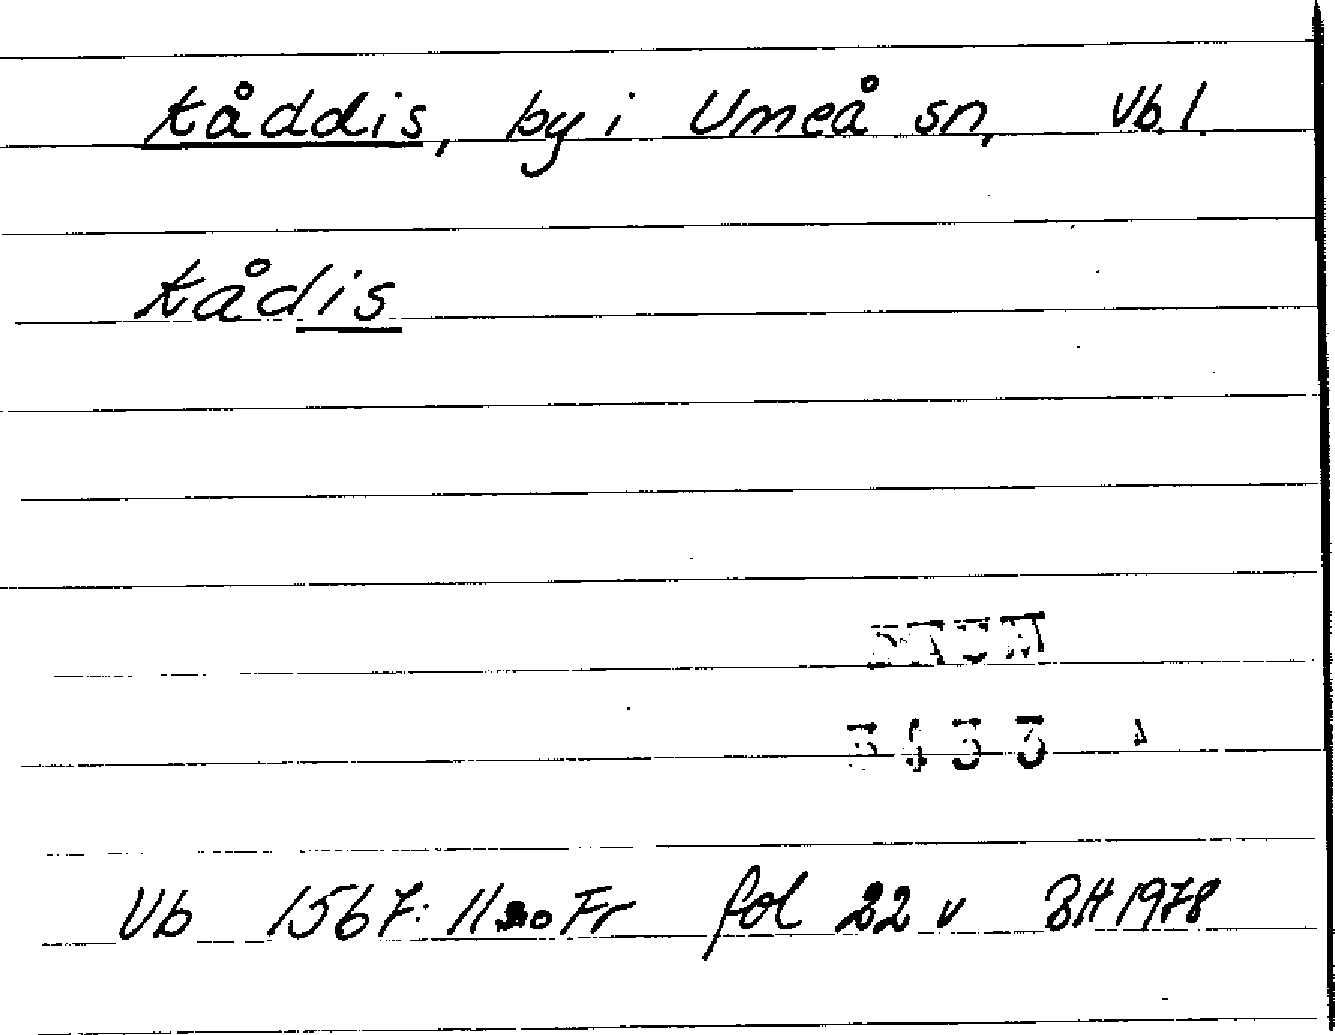 Kåddis, by i Umeå sn, Vb. l.
Kådis
Vb 1567: 11 Fr fol 22 v BH 1978